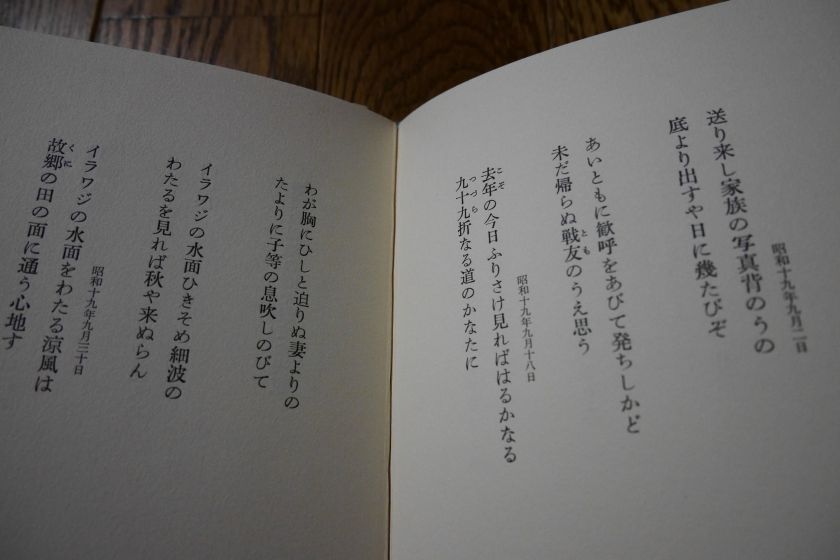 昭和十九年九月二日
送り来し家族の写真背のうの
底より出すや日に幾たびぞ
あいともに歓呼をあびて発ちしかど
未だ帰らぬ戦友のうえ思う
とも
昭和十九年九月十八日
去年の今日ふりさけ見ればはるかなる
こぞ
九十九折なる道のかなたに
つづら
わが胸にひしと迫りぬ妻よりの
たよりに子等の息吹しのびて
イラワジの水面ひきそめ細波の
わたるを見れば秋や来ぬらん
昭和十九年九月三十日
イラワジの水面をわたる涼風は
故郷の田の面に通う心地す
くに